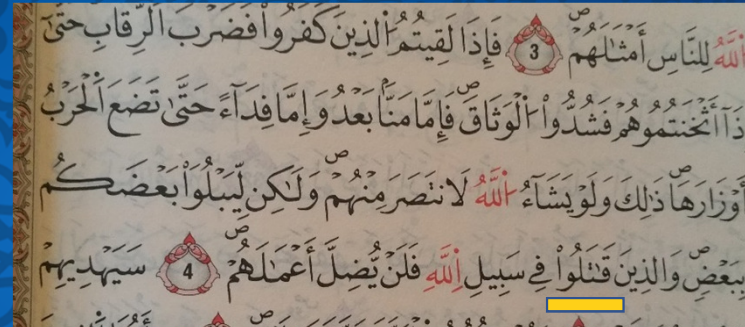 اَللَّهُ لِلنَّاسِ أَمْثَٰلَهُمْ ۖ 3 فَإِذَا لَقِيتُمُ اُ۬لذِينَ كَفَرُواْ فَضَرْبَ اَ۬لرِّقَابِ حَتَّىٰ
ذَآ أَثْخَنتُمُوهُمْ فَشُدُّواْ اُ۬لْوَثَاقَ ۖ فَإِمَّا مَنّاَۢ بَعْدُ وَإِمَّا فِدَآءً حَتَّىٰ تَضَعَ اَ۬لْحَرْبُ
أَوْزَارَهَا ۖ ذَٰلِكَ وَلَوْ يَشَآءُ اُ۬للَّهُ لَانتَصَرَ مِنْهُمْ ۖ وَلَٰكِن لِّيَبْلُوَاْ بَعْضَكُم
بِبَعْضٍ ۖ وَالذِينَ قَٰتَلُواْ فِے سَبِيلِ اِ۬للَّهِ فَلَنْ يُّضِلَّ أَعْمَٰلَهُمْ ۖ 4 سَيَهْدِيهِمْ